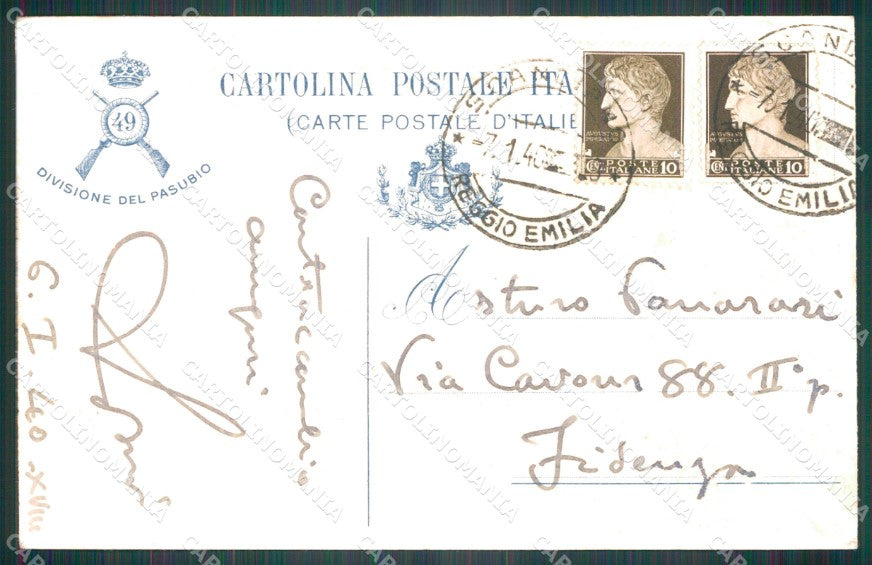 49
DIVISIONE DEL PASUBIO
CARTOLINA POSTALE ITA
(CARTE POSTALE D'ITALIE
REGGIO EMILIA
-7.1.40
AUGUSTUS
CEN POSTE ITALIANE 10
AUGUSTUS
CEN POSTE ITALIANE 10
EMILIA
Contraccambio
auguri
6. I. 40 - XVIII
A Arturo Panarari
Via Cavour 88. II° p.
Fidenza
CARTOLINOMANIA